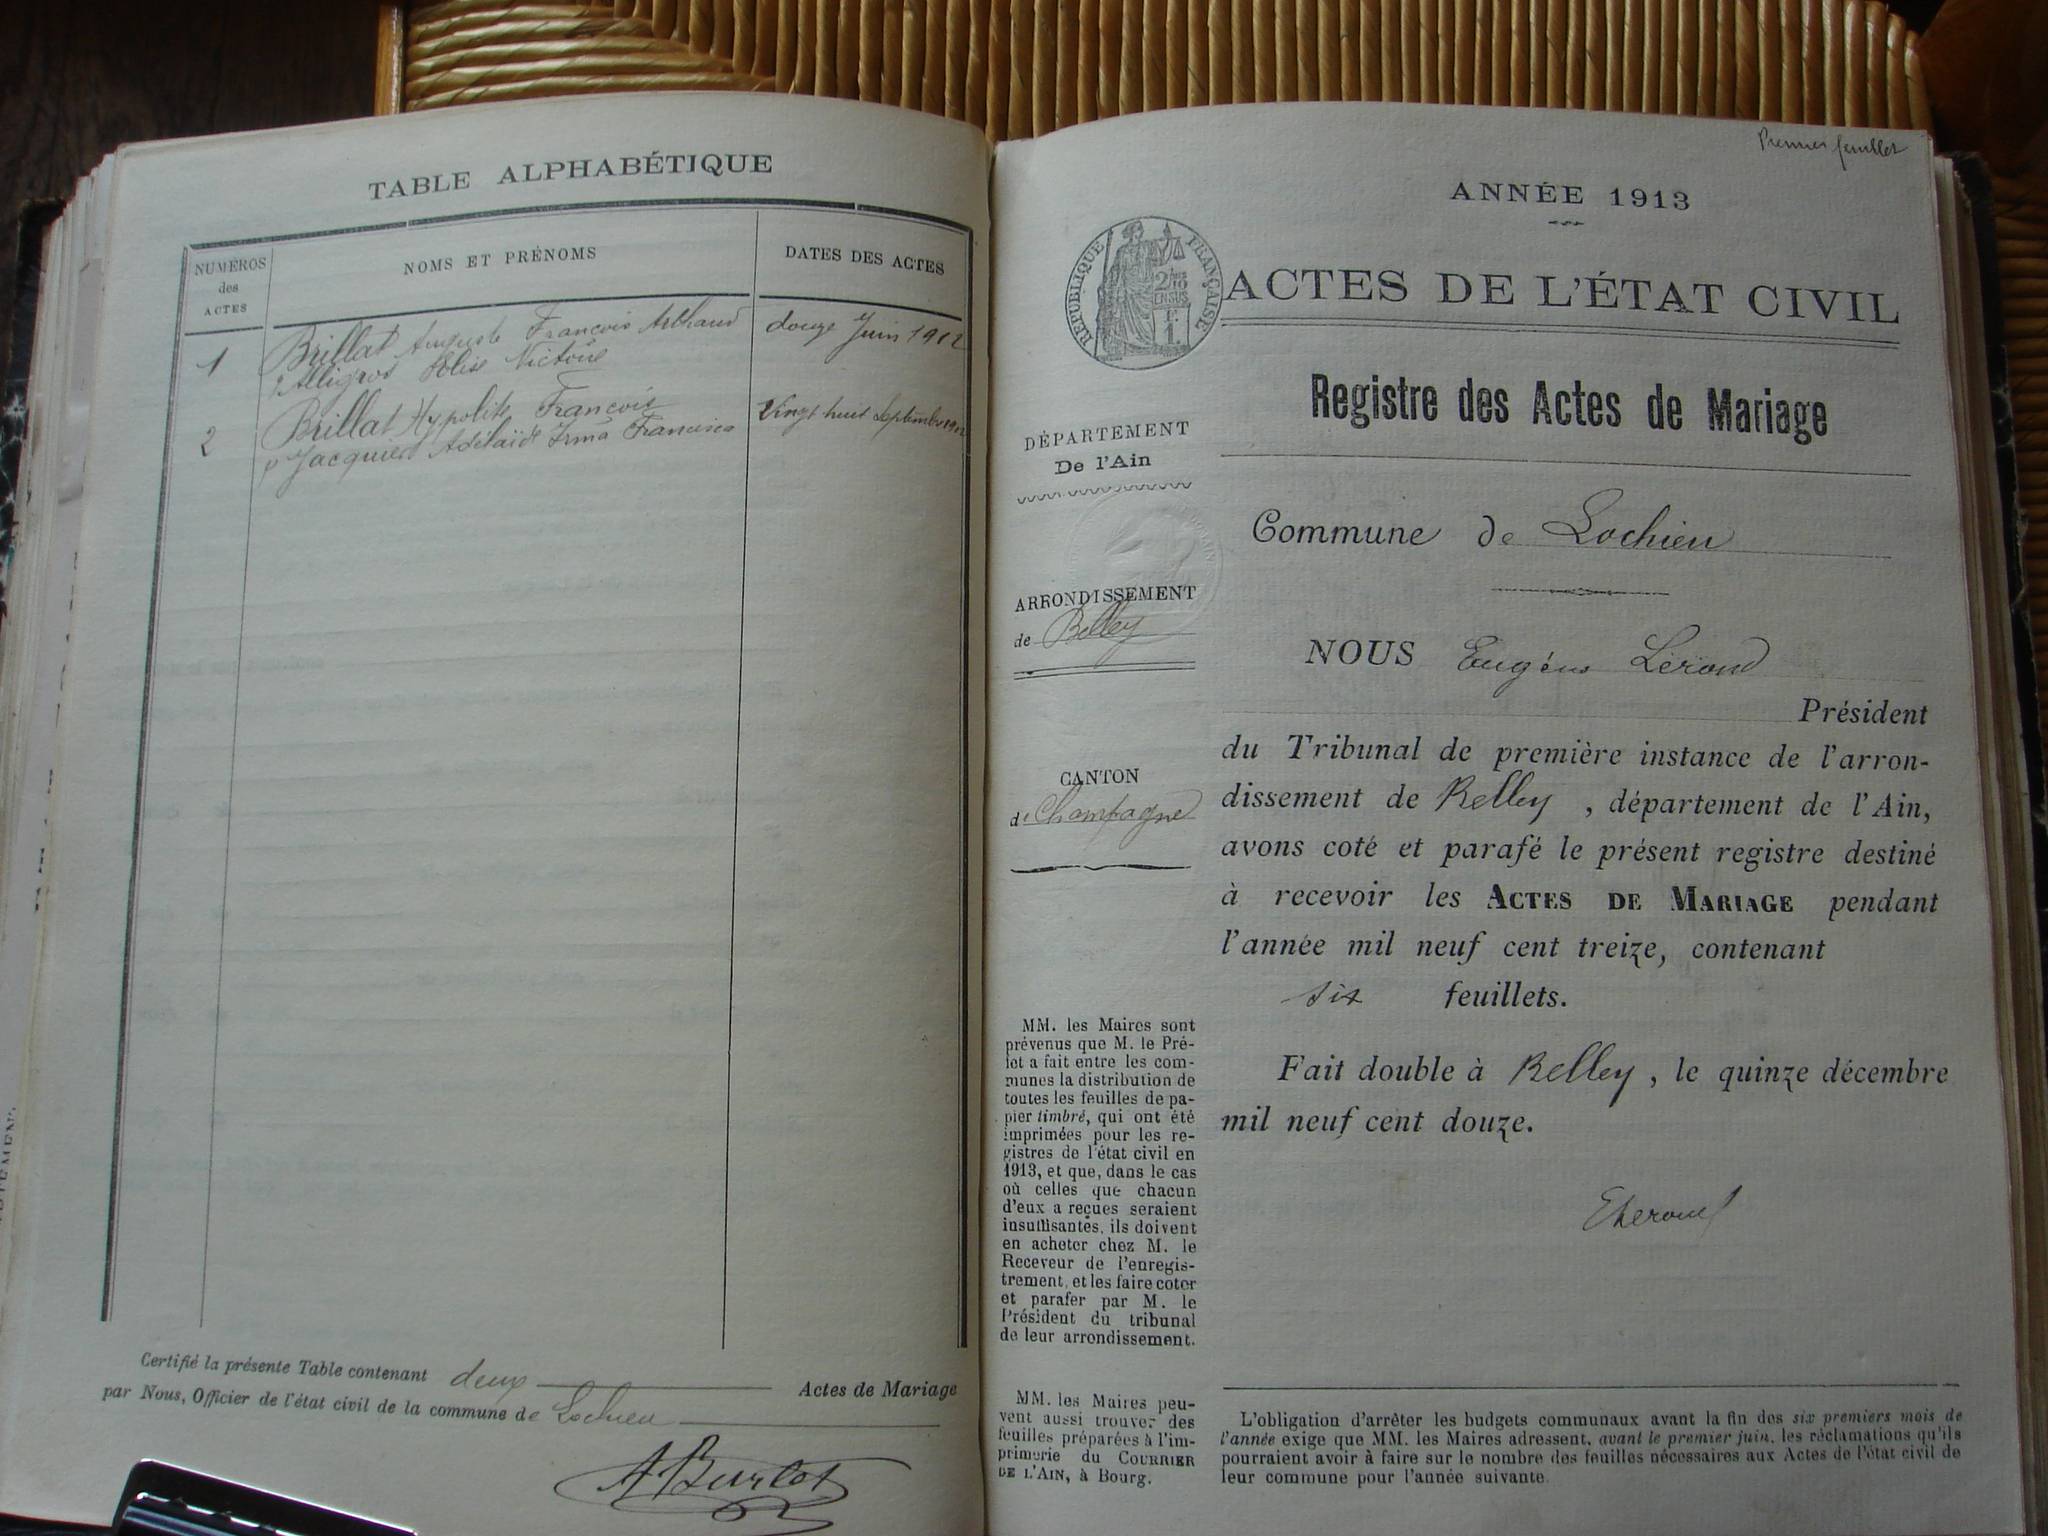 TABLE ALPHABÉTIQUE
NUMÉROS
des
ACTES
NOMS ET PRÉNOMS
DATES DES ACTES
1
Brillat Auguste François Arthaud
douze Juin 1912
Victoire
2
Brillat Hypolite François
Vingt huit Septembre 1912
Adélaïde Irma Francisca
Certifié la présente Table contenant deux Actes de Mariage
par Nous, Officier de l'état civil de la commune de Lochieu
A Burlet
Premier feuillet
ANNÉE 1913
RÉPUBLIQUE FRANÇAISE
2/10
EN SUS
1 F.
ACTES DE L'ÉTAT CIVIL
Registre des Actes de Mariage
DÉPARTEMENT
De l'Ain
ARRONDISSEMENT
de Belley
CANTON
de Champagne
MM. les Maires sont
prévenus que M. le Pré-
fet a fait entre les com-
munes la distribution de
toutes les feuilles de pa-
pier timbré, qui ont été
imprimées pour les re-
gistres de l'état civil en
1913, et que, dans le cas
où celles que chacun
d'eux a reçues seraient
insuffisantes, ils doivent
en acheter chez M. le
Receveur de l'enregis-
trement, et les faire coter
et parafer par M. le
Président du tribunal
de leur arrondissement.
MM. les Maires peu-
vent aussi trouver des
feuilles préparées à l'im-
primerie du COURRIER
DE L'AIN, à Bourg.
Commune de Lochieu
NOUS Eugène
Président
du Tribunal de première instance de l'arron-
dissement de Belley, département de l'Ain,
avons coté et parafé le présent registre destiné
à recevoir les ACTES DE MARIAGE pendant
l'année mil neuf cent treize, contenant
six feuillets.
Fait double à Belley, le quinze décembre
mil neuf cent douze.
L'obligation d'arrêter les budgets communaux avant la fin des six premiers mois de
l'année exige que MM. les Maires adressent, avant le premier juin, les réclamations qu'ils
pourraient avoir à faire sur le nombre des feuilles nécessaires aux Actes de l'état civil de
leur commune pour l'année suivante.